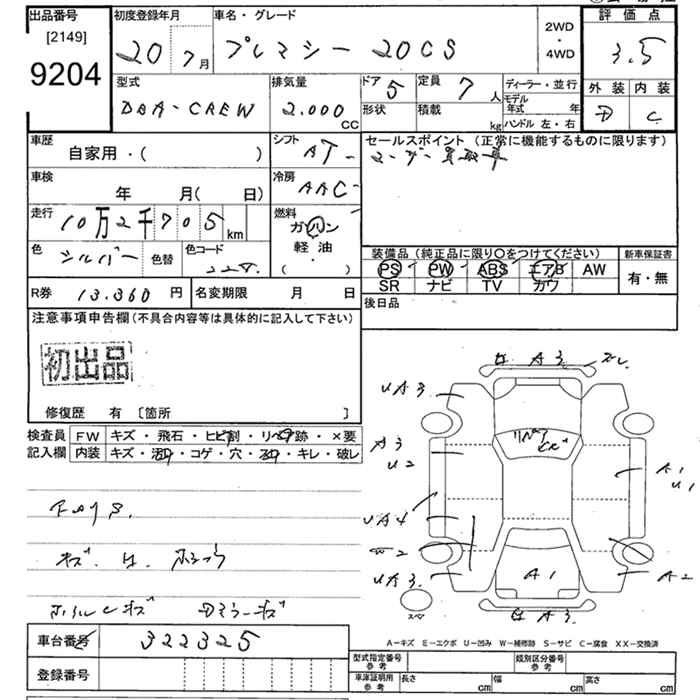 出品番号 初度登録年月 車名・グレード 2WD・4WD 評価点
[2149]
9204 20 7月 プレマシー 20CS 3.5
型式 排気量 ドア 5 定員 7人 ディーラー・並行 外装 内装
DBA-CREW 2.000 CC 形状 積載 kg モデル年式 年 D C
ハンドル 左・右
車歴 自家用・( ) シフト AT セールスポイント (正常に機能するものに限ります)
車検 年 月( 日) 冷房 AAC
走行 10万2千705km 燃料 ガソリン
軽油・( )
色 シルバー 色替 色コード 22V
装備品 (純正品に限り○をつけてください) 新車保証書
PS PW ABS エアB AW 有・無
SR ナビ TV カワ
R券 13.360円 名変期限 月 日 後日品
注意事項申告欄(不具合内容等は具体的に記入して下さい)
初出品
修復歴 有 〔箇所 〕
検査員 FW キズ・飛石・ヒビ割・リペア跡・×要
記入欄 内装 キズ・汚れ・コゲ・穴・・キレ・破レ
下回りS
キズ
キズ Dミラーキズ
A3
UA3
リペア
A3
U2 A1
U1
UA4
W2
UA3 A1 A2
スペア A3
車台番号 322325
A-キズ E-エクボ U-凹み W-補修跡 S-サビ C-腐食 XX-交換済
登録番号 型式指定番号 参考 類別区分番号 参考
車庫証明用 参考 長さ cm 幅 cm 高さ cm